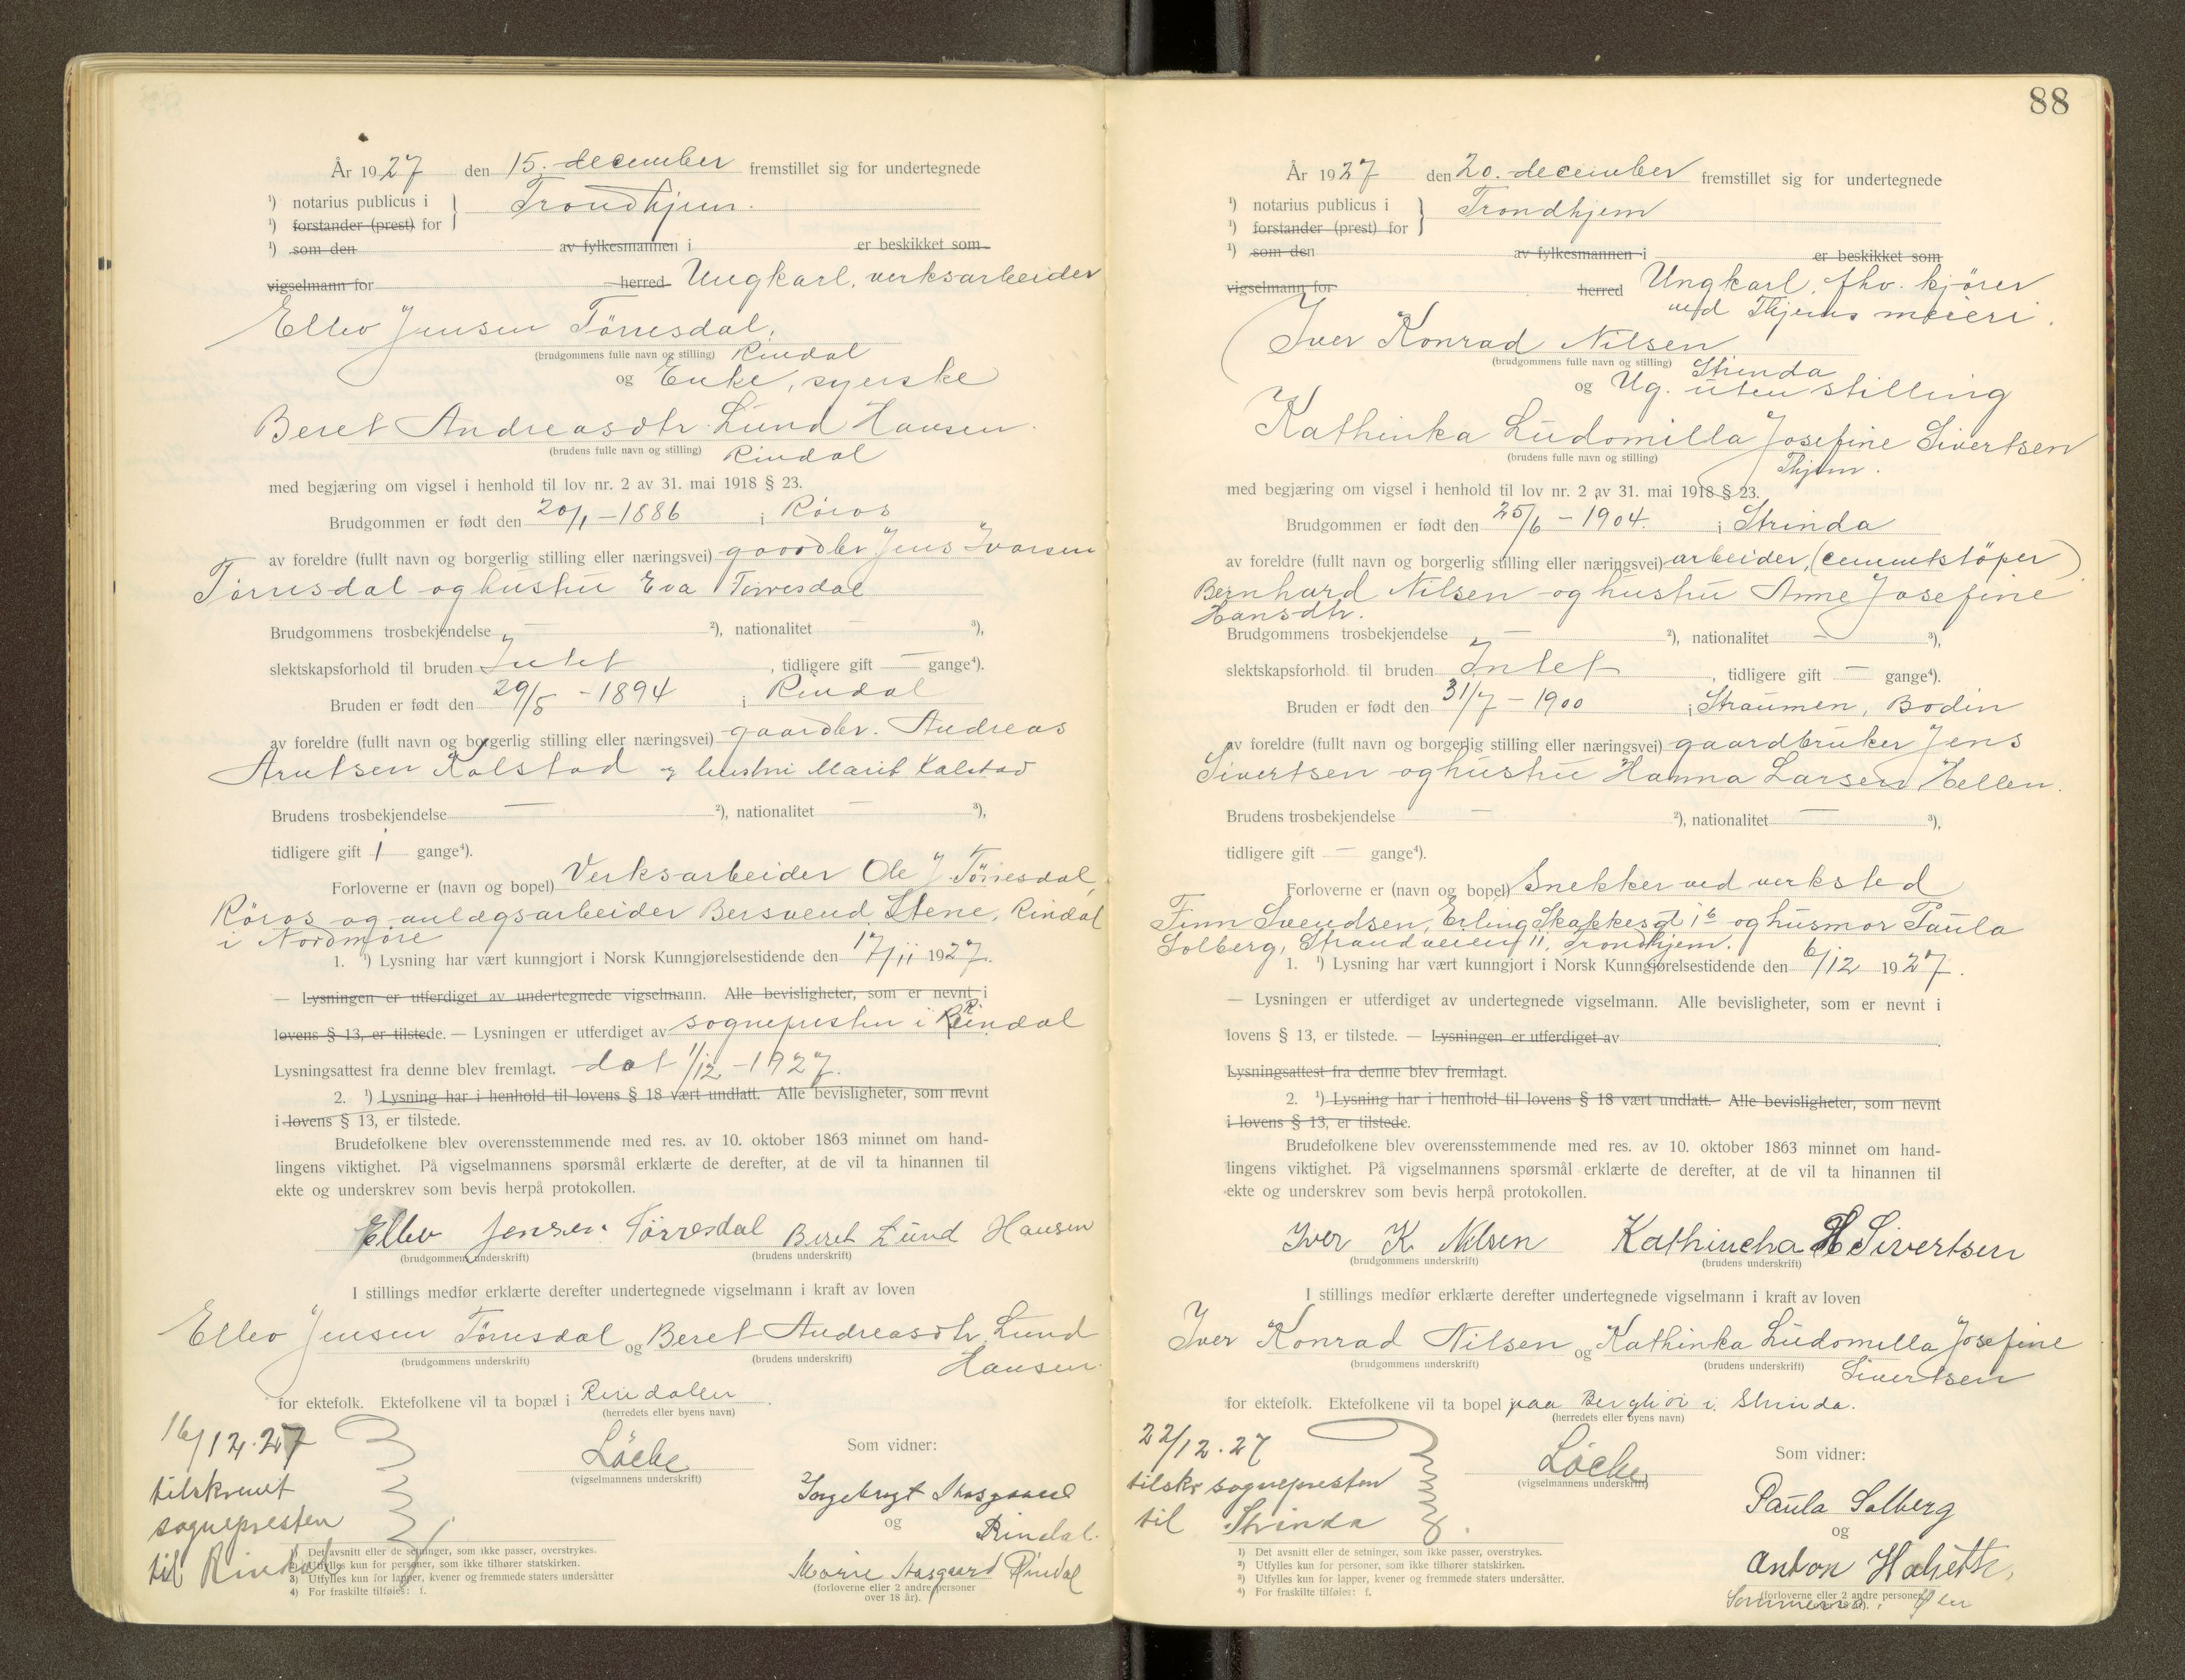 År 1927 den 15. december fremstillet sig for undertegnede
¹) notarius publicus i } Trondhjem.
¹) forstander (prest) for
¹) som den av fylkesmannen i er beskikket som
vigselmann for herred Ungkarl, verksarbeider
Ellev Jensen Tørresdal,
(brudgommens fulle navn og stilling) Rindal
og Enke, syerske
Beret Andreasdtr. Lund Hansen.
(brudens fulle navn og stilling) Rindal
med begjæring om vigsel i henhold til lov nr. 2 av 31. mai 1918 § 23.
Brudgommen er født den 20/1 - 1886 i Røros
av foreldre (fullt navn og borgerlig stilling eller næringsvei) gaardbr Jens Ivarsen
Tørresdal og hustru Eva Tørresdal
Brudgommens trosbekjendelse — ²), nationalitet — ³),
slektskapsforhold til bruden Intet, tidligere gift — gange⁴).
Bruden er født den 29/5 - 1894 i Rindal
av foreldre (fullt navn og borgerlig stilling eller næringsvei) gaardbr. Andreas
Arntsen Kalstad og hustru Marit Kalstad
Brudens trosbekjendelse — ²), nationalitet — ³),
tidligere gift 1 gange⁴).
Forloverne er (navn og bopel) Verksarbeider Ole J. Tørresdal,
Røros og anlægsarbeider Bersvend Stene, Rindal
i Nordmøre
1. ¹) Lysning har vært kunngjort i Norsk Kunngjørelsestidende den 17/11 1927.
— Lysningen er utferdiget av undertegnede vigselmann. Alle bevisligheter, som er nevnt i
lovens § 13, er tilstede. — Lysningen er utferdiget av sognepresten i Rindal
Lysningsattest fra denne blev fremlagt. dat 1/12 - 1927.
2. ¹) Lysning har i henhold til lovens § 18 vært undlatt. Alle bevisligheter, som nevnt
i lovens § 13, er tilstede.
Brudefolkene blev overensstemmende med res. av 10. oktober 1863 minnet om hand-
lingens viktighet. På vigselmannens spørsmål erklærte de derefter, at de vil ta hinannen til
ekte og underskrev som bevis herpå protokollen.
Ellev Jensen Tørresdal Beret Lund Hansen
(brudgommens underskrift) (brudens underskrift)
I stillings medfør erklærte derefter undertegnede vigselmann i kraft av loven
Ellev Jensen Tørresdal og Beret Andreasdtr. Lund
(brudgommens underskrift) (brudens underskrift) Hansen
for ektefolk. Ektefolkene vil ta bopæl i Rindalen.
(herredets eller byens navn)
16/12.27
tilskrevet
sognepresten
til Rindal
Löcke
(vigselmannens underskrift)
Som vidner:
Ingebrigt
og
Rindal.
Marie Aasgaard Rindal
(forloverne eller 2 andre personer
over 18 år).
1) Det avsnitt eller de setninger, som ikke passer, overstrykes.
2) Utfylles kun for personer, som ikke tilhører statskirken.
3) Utfylles kun for lapper, kvener og fremmede staters undersåtter
4) For fraskilte tilføies: f.
88
År 1927 den 20. december fremstillet sig for undertegnede
¹) notarius publicus i } Trondhjem
¹) forstander (prest) for
¹) som den av fylkesmannen i er beskikket som
vigselmann for herred Ungkarl, fhv. kjører
ved Thjems meieri.
Iver Konrad Nilsen
(brudgommens fulle navn og stilling) Strinda
og Ug. uten stilling
Kathinka Ludomilla Josefine Sivertsen
(brudens fulle navn og stilling) Thjem.
med begjæring om vigsel i henhold til lov nr. 2 av 31. mai 1918 § 23.
Brudgommen er født den 25/6 - 1904. i Strinda
av foreldre (fullt navn og borgerlig stilling eller næringsvei) arbeider, (cementstöper)
Bernhard Nilsen og hustru Anne Josefine
Hansdtr.
Brudgommens trosbekjendelse — ²), nationalitet — ³),
slektskapsforhold til bruden Intet, tidligere gift — gange⁴).
Bruden er født den 31/7 - 1900 i Straumen, Bodin
av foreldre (fullt navn og borgerlig stilling eller næringsvei) gaardbruker Jens
Sivertsen og hustru Hanna Larsen Hellen.
Brudens trosbekjendelse — ²), nationalitet — ³),
tidligere gift — gange⁴).
Forloverne er (navn og bopel) Snekker ved verksted
Finn Svendsen, Erling Skakkesgt 1b og husmor Paula
Solberg, Strandveien 11, Trondhjem.
1. ¹) Lysning har vært kunngjort i Norsk Kunngjørelsestidende den 6/12 1927.
— Lysningen er utferdiget av undertegnede vigselmann. Alle bevisligheter, som er nevnt i
lovens § 13, er tilstede. — Lysningen er utferdiget av
Lysningsattest fra denne blev fremlagt.
2. ¹) Lysning har i henhold til lovens § 18 vært undlatt. Alle bevisligheter, som nevnt
i lovens § 13, er tilstede.
Brudefolkene blev overensstemmende med res. av 10. oktober 1863 minnet om hand-
lingens viktighet. På vigselmannens spørsmål erklærte de derefter, at de vil ta hinannen til
ekte og underskrev som bevis herpå protokollen.
Iver K. Nilsen Kathincha Sivertsen
(brudgommens underskrift) (brudens underskrift)
I stillings medfør erklærte derefter undertegnede vigselmann i kraft av loven
Iver Konrad Nilsen og Kathinka Ludomilla Josefine
(brudgommens underskrift) (brudens underskrift) Sivertsen
for ektefolk. Ektefolkene vil ta bopel paa i Strinda.
(herredets eller byens navn)
22/12.27
tilskr sognepresten
til Strinda
Löcke
(vigselmannens underskrift)
Som vidner:
Paula Solberg
og
Anton
(forloverne eller 2 andre personer
1) Det avsnitt eller de setninger, som ikke passer, overstrykes.
2) Utfylles kun for personer, som ikke tilhører statskirken.
3) Utfylles kun for lapper, kvener og fremmede staters undersåtter.
4) For fraskilte tilføies: f.